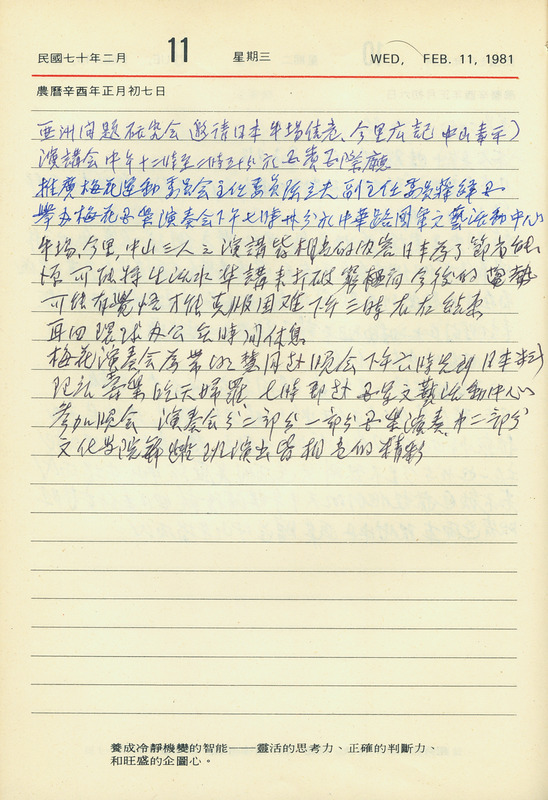 民國七十年二月 11 星期三 WED, FEB. 11, 1981
農曆辛酉年正月初七日
亞洲問題研究会 邀請日本 牛場信彦、今里広記 中山素平)
演講会中午十二時至二時五十分於 國賓國際廳
推廣梅花運動委員会主任委員陳立夫 副主任委員
舉办梅花國樂演奏会下午七時卅分於中華路國軍文藝活動中心
牛場,今里,中山三人之演講皆相当的內容日本為了節省能
源 可能將生流水準講求打破 今後的
可能有覺悟才能克服困难 下午三時左右結束
再回環球办公 会時間休息
梅花演奏会 同赴晚会 下午六時先到日本料
理 吃天婦羅 七時即赴 國軍文藝活動中心
參加晚会 演奏会分二部分 一部分國樂演奏 第二部分
文化学院舞蹈班演出皆相当的精彩
養成冷靜機變的智能——靈活的思考力、正確的判斷力、
和旺盛的企圖心。